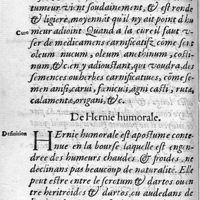 tumeur viẽt soudainement, & est ronde
& ligiere, moyennãt qu'il ny ait point d'hu
meur adioint. Quand a la cure il faut v-
Cure
ser de medicamens carnificatifz, cõme sont
oleum nucum, oleum anethinum, costi-
num, &c. en y adioustant, qui voudra, des
semences ou herbes carnatiues, comme se-
men anisi, carui, fœnicus, agni casti, ruta,
calamente, origani, &c.
De Hernie humorale.
Definition
HErnie humorale est apostume conte-
nue en la bourse, laquelle est engen-
dree des humeurs chaudes & froides, ne
declinans pas beaucoup de naturalité. Elle
peut estre entre le scrotum & dartos ou en
tre heritroides & dartos, ou audedans de